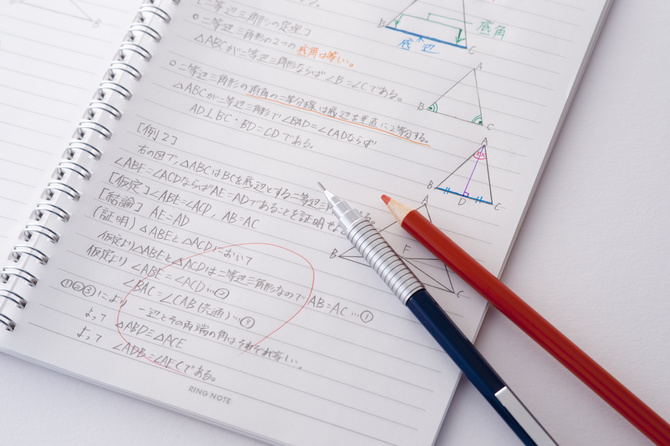 [二等辺三角形の定理]
○二等辺三角形の2つの底角は等しい。
△ABCが二等辺三角形ならば∠B=∠Cである。
○二等辺三角形の頂角の二等分線は底辺を垂直に2等分する。
△ABCが二等辺三角形で∠BAD=∠CADならば
AD⊥BC・BD=CDである。
[例2]
右の図で、△ABCはBCを底辺とする二等辺三
∠ABE=∠ACDならばAE=ADであることを証明せよ
[仮定]∠ABE=∠ACD, AB=AC
[結論] AE=AD
(証明) △ABEと△ACDにおいて
仮定より△ABEと△ACDは二等辺三角形なのでAB=AC…①
仮定より ∠ABE=∠ACD…②
∠BAC=∠CAB(共通)…③
①②③により 一辺とその両端の角はそれぞれ等しい。
よって △ABD≡△ACE
よって ∠ADB=∠AECである。
RING NOTE
底角
B
C
底辺
A
B
C
A
B
D
C
A
B
F
C